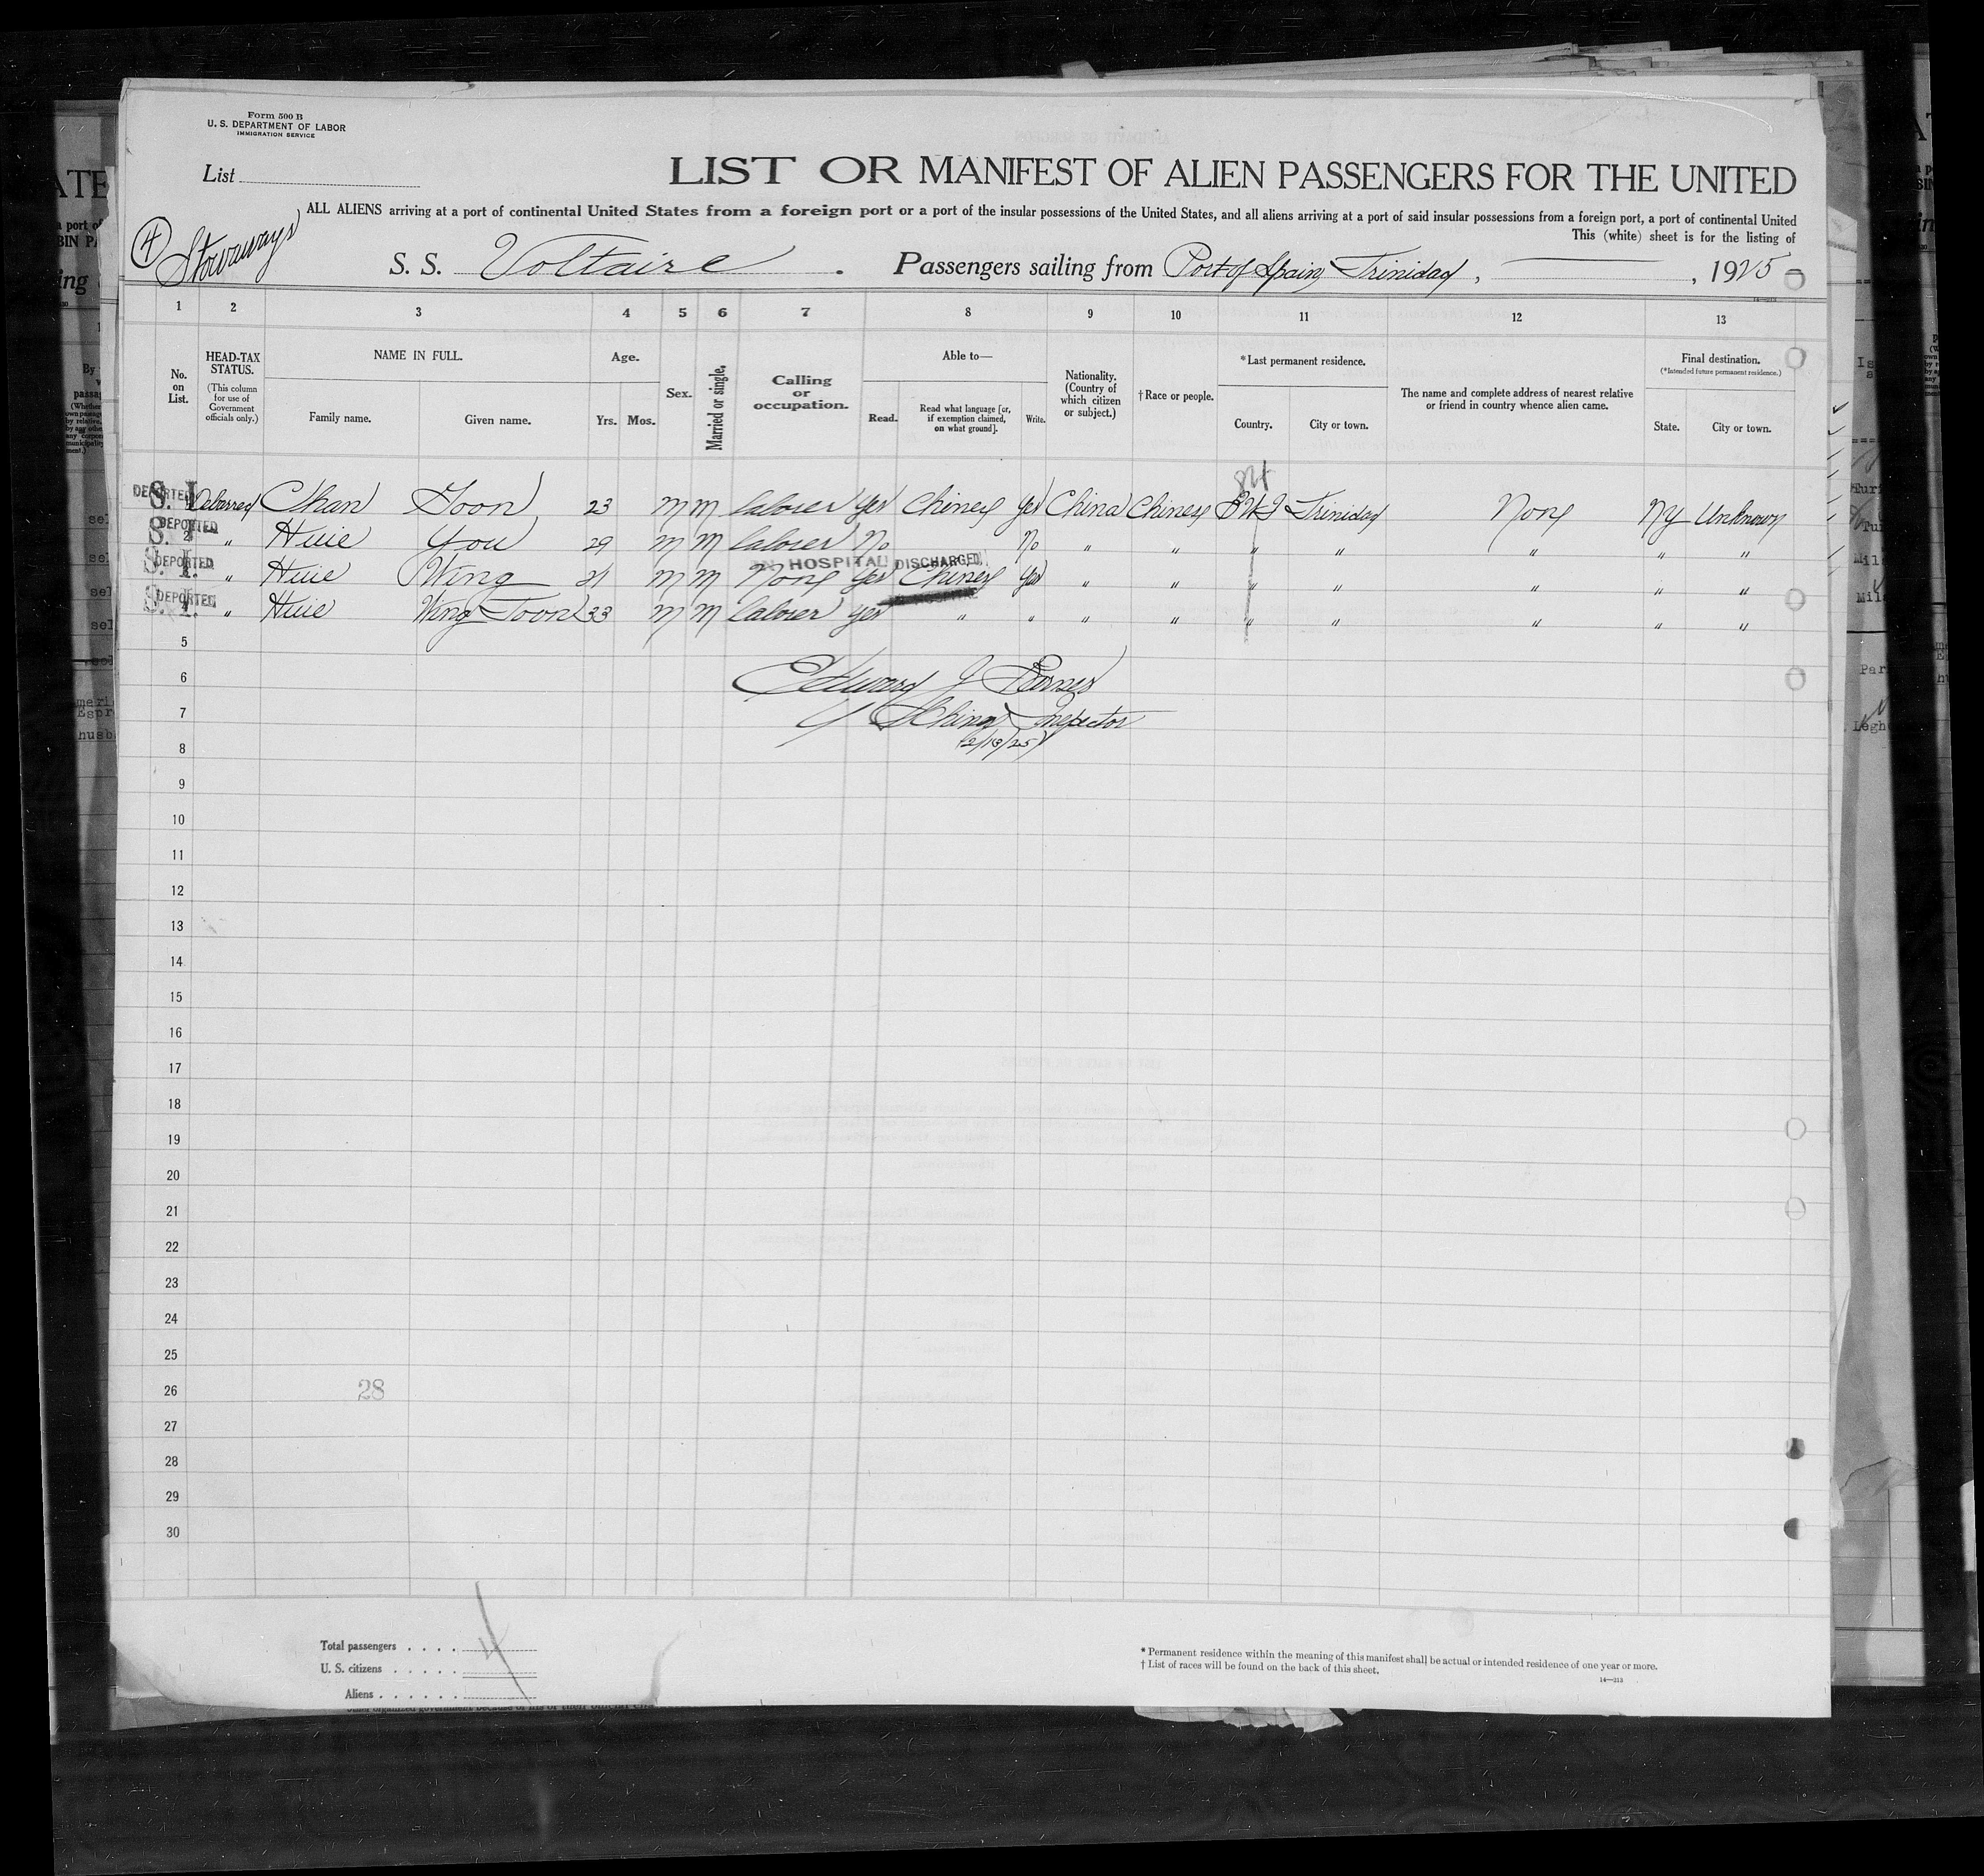 Form 500 B
U. S. DEPARTMENT OF LABOR
IMMIGRATION SERVICE
List
LIST OR MANIFEST OF ALIEN PASSENGERS FOR THE UNITED
ALL ALIENS arriving at a port of continental United States from a foreign port or a port of the insular possessions of the United States, and all aliens arriving at a port of said insular possessions from a foreign port, a port of continental United
This (white) sheet is for the listing of
4 Stowaways
S. S. Voltaire . Passengers sailing from Port of Spain, Trinidad, , 1925
1 2 3 4 5 6 7 8 9 10 11 12 13
No. on List.
HEAD-TAX STATUS.
(This column for use of Government officials only.)
NAME IN FULL.
Family name. Given name.
Age.
Yrs. Mos.
Sex.
Married or single.
Calling or occupation.
Able to—
Read. Read what language [or, if exemption claimed, on what ground]. Write.
Nationality. (Country of which citizen or subject.)
†Race or people.
*Last permanent residence.
Country. City or town.
The name and complete address of nearest relative or friend in country whence alien came.
Final destination.
(*Intended future permanent residence.)
State. City or town.
DEPORTED S. I. 1 Debarred Chan Goon 23 m m laborer Yes Chinese Yes China Chinese B W I Trinidad None NY Unknown
DEPORTED S. I. 2 " Huie You 29 m m laborer No No " " " " " " "
DEPORTED S. I. 3 " Huie Wing 21 m m None Yes Chinese Yes " " " " " " "
IN HOSPITAL DISCHARGED
DEPORTED S. I. 4 " Huie Wing Toon 33 m m laborer yes " " " " " " " " "
5
6
Edward J
7
Inspector
8
12/13/25
9
10
11
12
13
14
15
16
17
18
19
20
21
22
23
24
25
26 28
27
28
29
30
Total passengers . . . . 4
U. S. citizens . . . . .
Aliens . . . . . .
* Permanent residence within the meaning of this manifest shall be actual or intended residence of one year or more.
† List of races will be found on the back of this sheet.
14—213